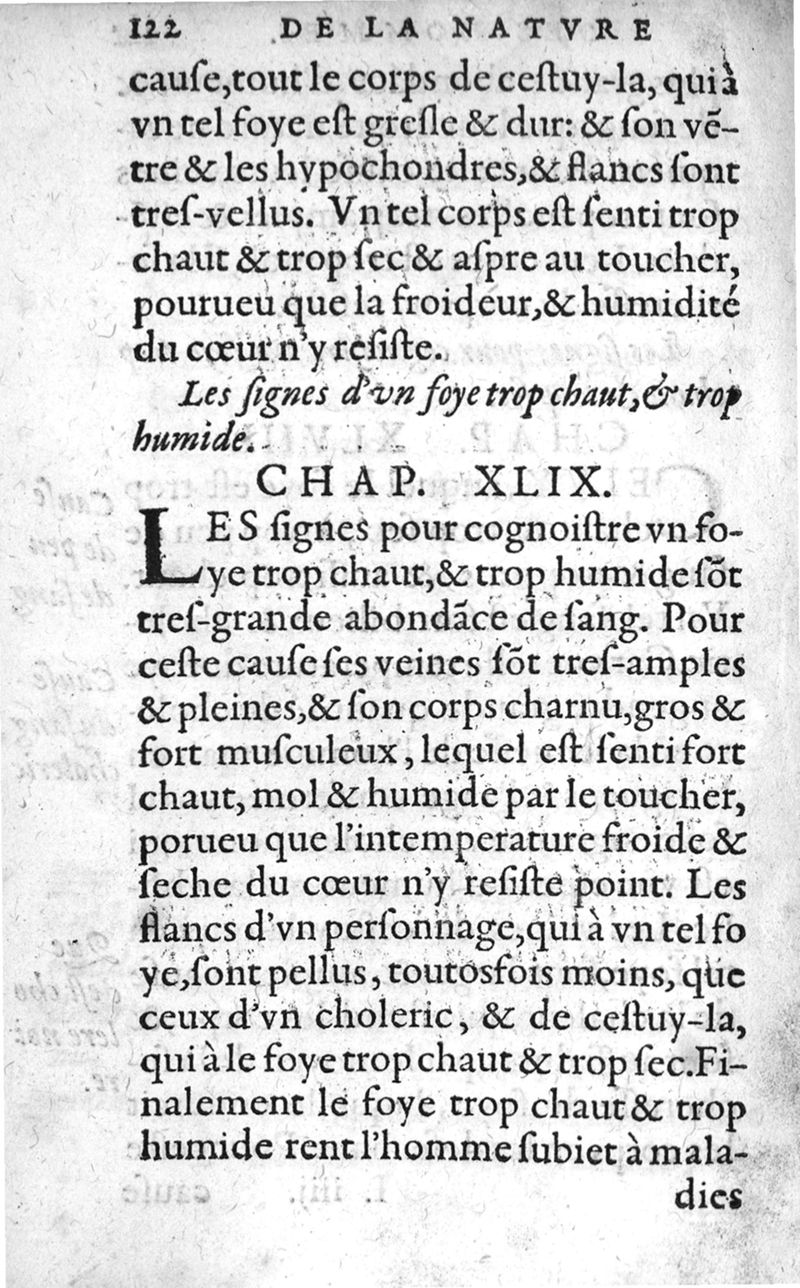 122 DE LA NATVRE
cauſe,tout le corps de ceſtuy-la, qui à
vn tel foye eſt greſle & dur: & ſon vẽ-
tre & les hypochondres,& flancs ſont
treſ-vellus. Vn tel corps eſt ſenti trop
chaut & trop ſec & aſpre au toucher,
pourueu que la froideur,& humidité
du cœur n'y reſiſte.
Les ſignes d'vn foye trop chaut,& trop
humide.
CHAP. XLIX.
LES ſignes pour cognoiſtre vn fo-
ye trop chaut,& trop humide ſõt
treſ-grande abondãce de ſang. Pour
ceſte cauſe ſes veines ſõt treſ-amples
& pleines,& ſon corps charnu,gros &
fort muſculeux, lequel eſt ſenti fort
chaut, mol & humide par le toucher,
porueu que l'intemperature froide &
ſeche du cœur n'y reſiſte point. Les
flancs d'vn perſonnage,qui à vn tel fo
ye,ſont pellus, toutosfois moins, que
ceux d'vn choleric, & de ceſtuy-la,
qui à le foye trop chaut & trop ſec.Fi-
nalement le foye trop chaut & trop
humide rent l'homme ſubiet à mala-
dies